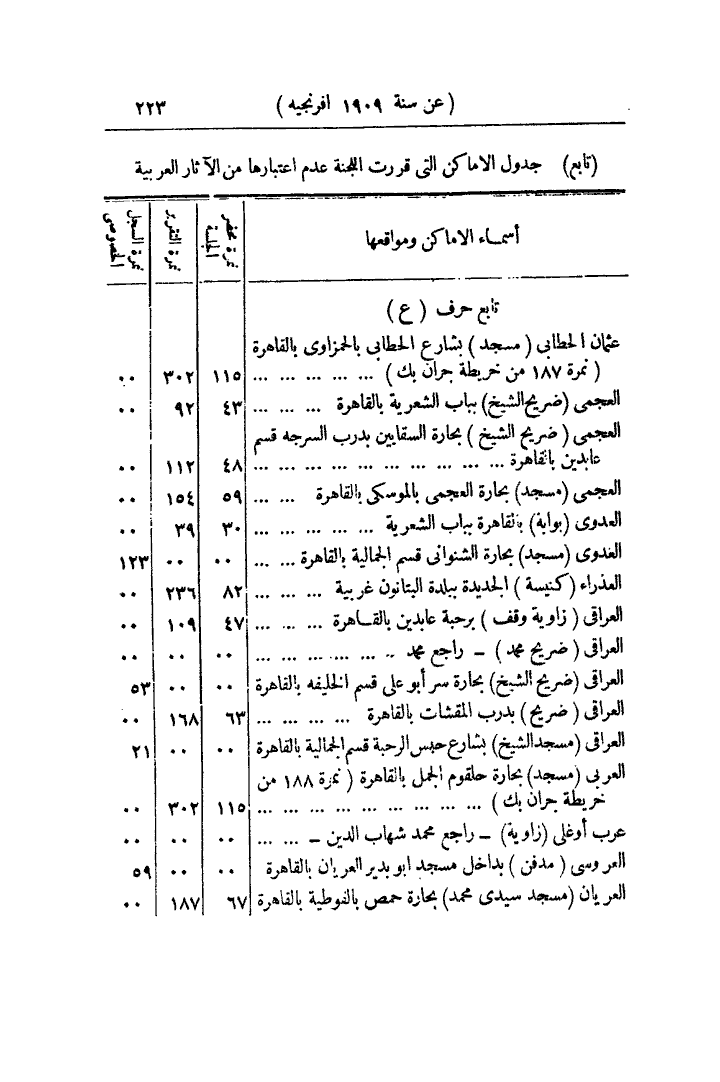 (عن سنة ١٩٠٩ افرنجيه) ٢٢٣
(تابع) جدول الاماكن التى قررت اللجنة عدم اعتبارها من الآثار العربية
أسماء الاماكن ومواقعها | نمرة محضر الجلسة | نمرة التقرير | نمرة السجل الخصوصى
تابع حرف (ع)
عثمان الحطابى (مسجد) بشارع الحطابى بالحمزاوى بالقاهرة
(نمرة ١٨٧ من خريطة جران بك) ... ... ... ... ... ١١٥ ٣٠٢ ٠٠
العجمى (ضريح الشيخ) بباب الشعرية بالقاهرة ... ... ... ٤٣ ٩٢ ٠٠
العجمى (ضريح الشيخ) بحارة السقايين بدرب السرجه قسم
عابدين بالقاهرة ... ... ... ... ... ... ... ... ... ٤٨ ١١٢ ٠٠
العجمى (مسجد) بحارة العجمى بالموسكى بالقاهرة ... ... ٥٩ ١٥٤ ٠٠
العدوى (بوابة) بالقاهرة بباب الشعرية ... ... ... ... ... ٣٠ ٣٩ ٠٠
الغدوى (مسجد) بحارة الشنوانى قسم الجمالية بالقاهرة ... ... ٠٠ ٠٠ ١٢٣
العذراء (كنيسة) الجديدة ببلدة البتانون غربية ... ... ... ٨٢ ٢٣٦ ٠٠
العراقى (زاوية وقف) برحبة عابدين بالقاهرة ... ... ... ٤٧ ١٠٩ ٠٠
العراقى (ضريح محمد) – راجع محمد .. ... ... ... ... ... ٠٠ ٠٠ ٠٠
العراقى (ضريح الشيخ) بحارة سر أبو على قسم الخليفه بالقاهرة ٠٠ ٠٠ ٥٣
العراقى (ضريح) بدرب المقشات بالقاهرة ... ... ... ... ٦٣ ١٦٨ ٠٠
العراقى (مسجد الشيخ) بشارع حبس الرحبة قسم الجمالية بالقاهرة ٠٠ ٠٠ ٢١
العربى (مسجد) بحارة حلقوم الجمل بالقاهرة (نمرة ١٨٨ من
خريطة جران بك) ... ... ... ... ... ... ... ... ... ١١٥ ٣٠٢ ٠٠
عرب أوغلى (زاوية) – راجع محمد شهاب الدين – ... ... ٠٠ ٠٠ ٠٠
العروسى (مدفن) بداخل مسجد ابو بدير العريان بالقاهرة ٠٠ ٠٠ ٥٩
العريان (مسجد سيدى محمد) بحارة حمص بالفوطية بالقاهرة ٦٧ ١٨٧ ٠٠